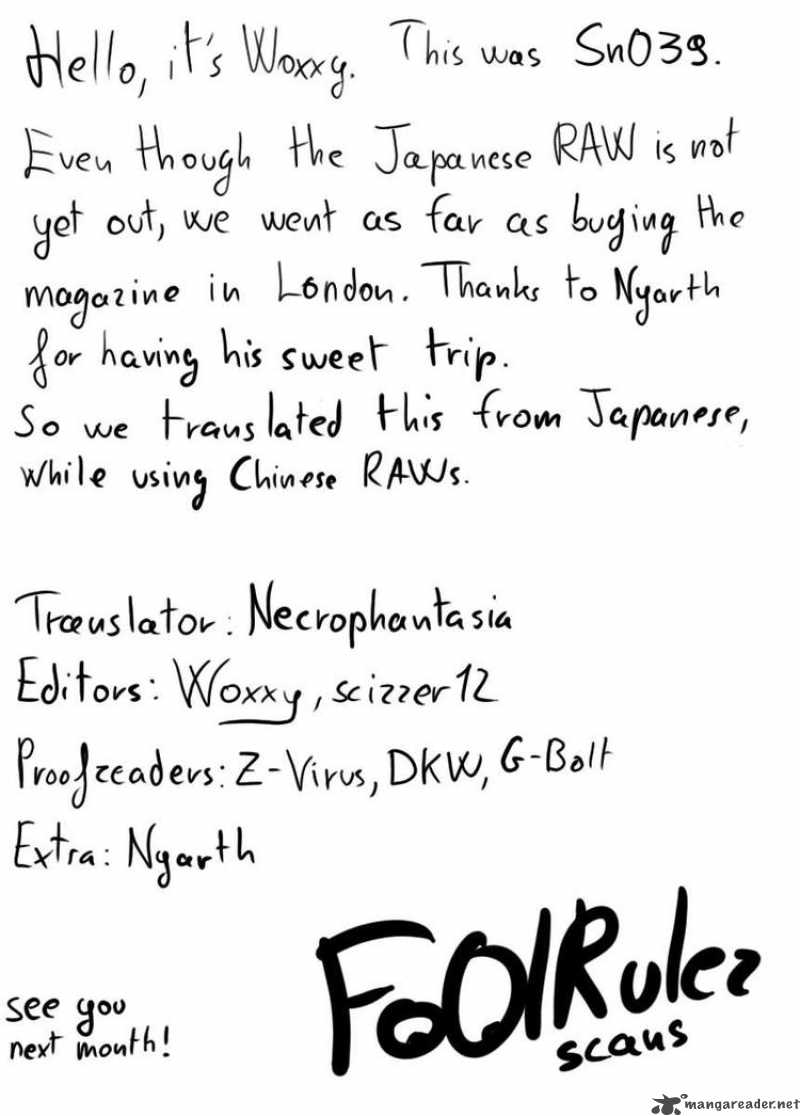 Hello, it's Woxxy. This was Sn039.
Even though the Japanese RAW is not
yet out, we went as far as buying the
magazine in London. Thanks to Nyarth
for having his sweet trip.
So we translated this from Japanese,
while using Chinese RAWs.
Translator: Necrophantasia
Editors: Woxxy, scizzer12
Proofreaders: Z-Virus, DKW, G-Bolt
Extra: Nyarth
see you
next month!
FoOlRulez
scans
mangareader.net